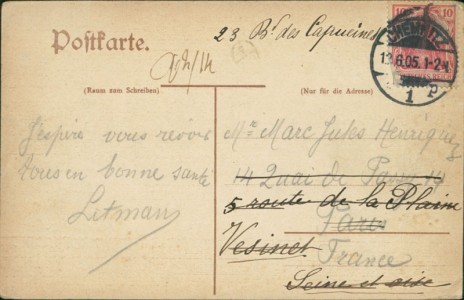 23 Bd des Capucines
Postkarte.
10 10
CHEMNITZ
6.05. 1-2
1
(Raum zum Schreiben.)
(Nur für die Adresse)
J'espère vous revoir
tous en bonne santé
Litman
Mr Marc Jules Henriquez
14 Quai de Passy 14
5 route de la Plaine
Paris
Vesinet
France
Seine et oise